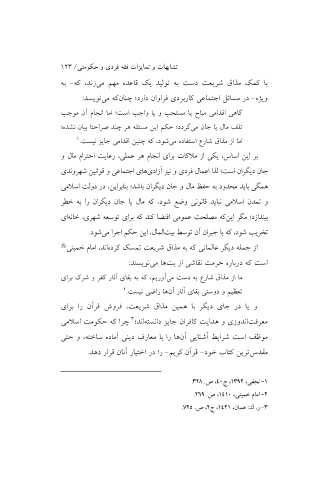 تشابهات و تمایزات فقه فردی و حکومتی/ ۱۲۳
با کمک مذاق شریعت دست به تولید یک قاعده مهم می‌زند، که- به
ویژه- در مسائل اجتماعی کاربردی فراوان دارد؛ چنان‌که می‌نویسد:
گاهی اقدامی مباح یا مستحب و یا واجب است؛ اما انجام آن موجب
تلف مال یا جان می‌گردد؛ حکم این مسئله هر چند صراحتا بیان نشده؛
اما از مذاق شارع استفاده می‌شود، که چنین اقدامی جایز نیست.۱
بر این اساس، یکی از ملاکات برای انجام هر عملی، رعایت احترام مال و
جان دیگران است؛ لذا اعمال فردی و نیز آزادی‌های اجتماعی و قوانین شهروندی
همگی باید محدود به حفظ مال و جان دیگران باشد؛ بنابراین، در دولت اسلامی
و تمدن اسلامی نباید قانونی وضع شود، که مال یا جان دیگران را به خطر
بیندازد؛ مگر این‌که مصلحت عمومی اقتضا کند که برای توسعه شهری، خانه‌ای
تخریب شود، که با جبران آن توسط بیت‌المال، این حکم اجرا می‌شود.
از جمله دیگر عالمانی که به مذاق شریعت تمسک کرده‌اند، امام خمینی
است که درباره حرمت نقاشی از بت‌ها می‌نویسند:
ما از مذاق شارع به دست می‌آوریم، که به بقای آثار کفر و شرک برای
تعظیم و دوستی بقای آثار آن‌ها راضی نیست.۲
و یا در جای دیگر با همین مذاق شریعت، فروش قرآن را برای
معرفت‌اندوزی و هدایت کافران جایز دانسته‌اند؛۳ چرا که حکومت اسلامی
موظف است شرایط آشنایی آن‌ها را با معارف دینی آماده ساخته، و حتی
مقدس‌ترین کتاب خود- قرآن کریم- را در اختیار آنان قرار دهد.
۱- نجفی، ۱۳۹۲، ج۴۰، ص. ۳۲۸.
۲- امام خمینی، ۱۴۱۰، ص. ۲۶۹.
۳- ر. ک: همان، ۱۴۲۱، ج۲، ص. ۷۲۵.